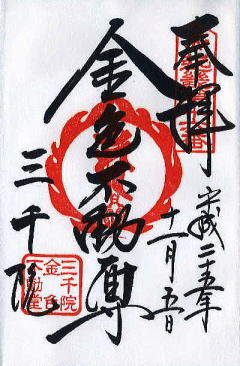 奉拝
平成二十五年
十一月五日
金色不動尊
三千院
三千院
金色
不動堂